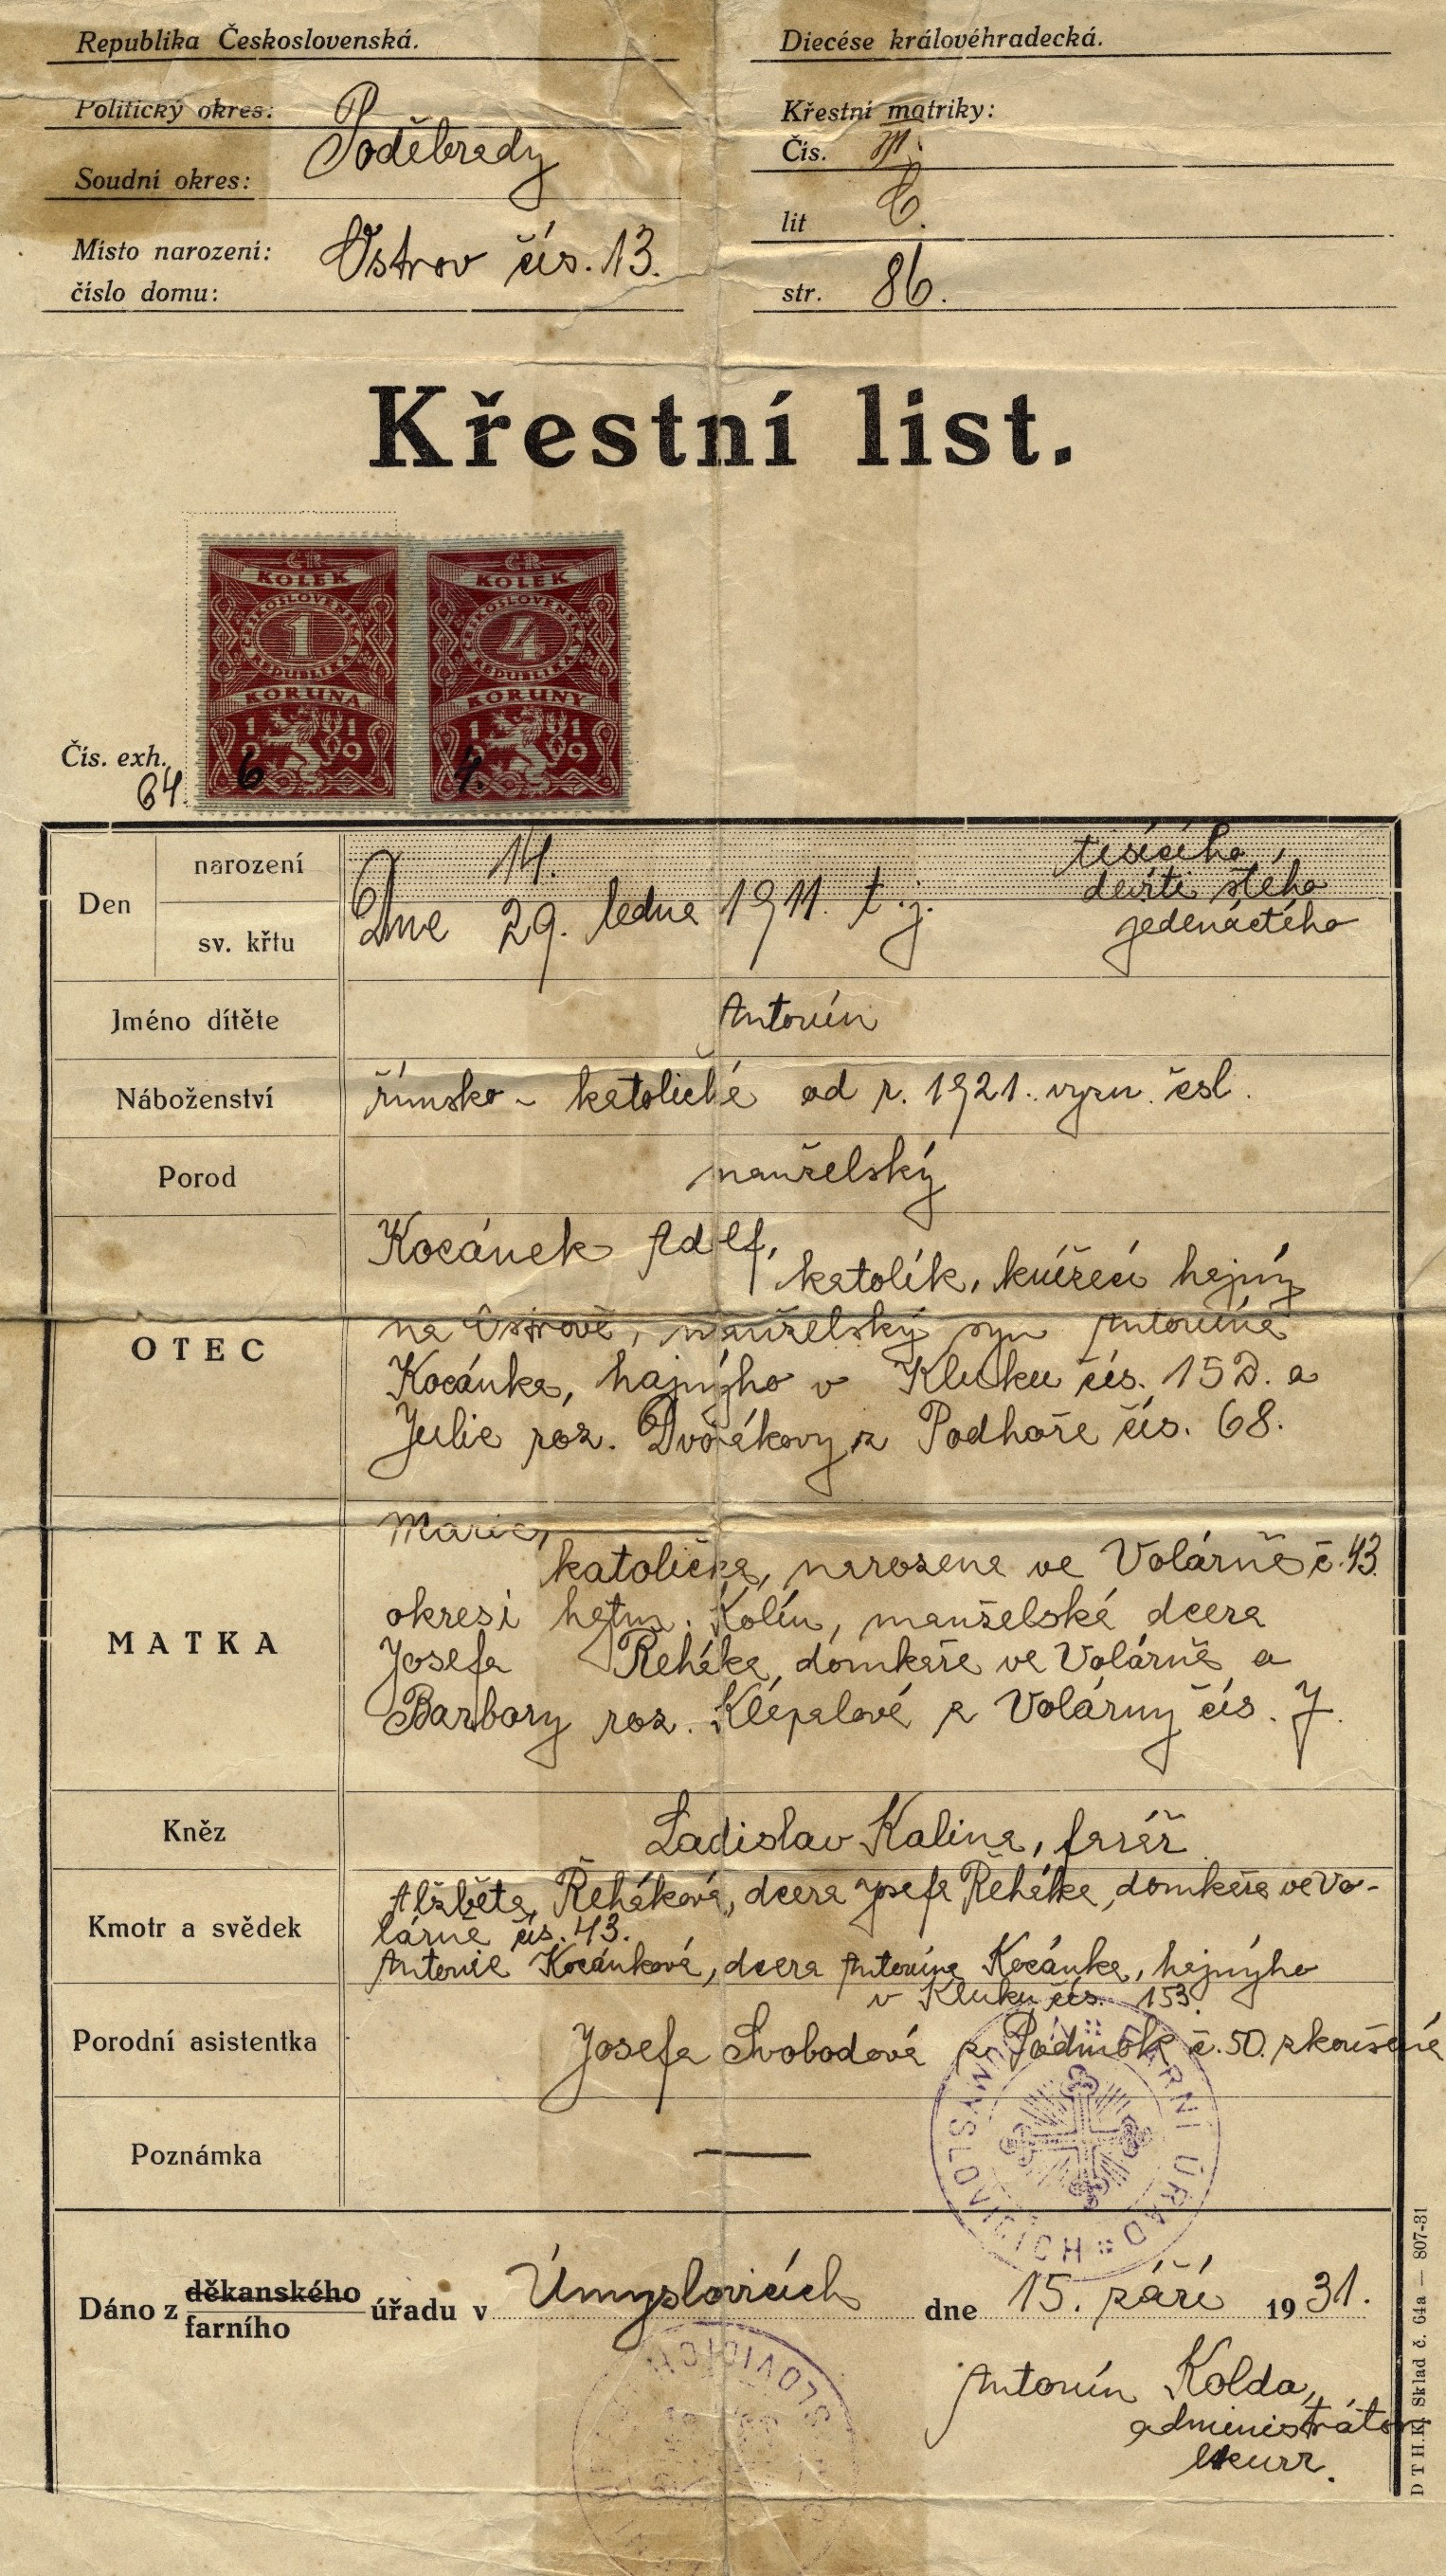 Republika Československá.
Diecése královéhradecká.
Politický okres:
Poděbrady
Soudní okres:
Místo narození:
číslo domu:
Ostrov čís. 13.
Křestní matriky:
Čís. III.
lit C.
str. 86.
Křestní list.
ČR
KOLEK
ČESKOSLOVENSKÁ
1
REPUBLIKA
KORUNA
1919
6
ČR
KOLEK
ČESKOSLOVENSKÁ
4
REPUBLIKA
KORUNY
1919
4.
Čís. exh.
64.
Den
narození
sv. křtu
14.
Dne 29. ledna 1911. t.j.
tisícího
devíti stého
jedenáctého
Jméno dítěte
Antonín
Náboženství
římsko-katolické od r. 1921. vyzn. čsl.
Porod
manželský
OTEC
Kocánek Adolf,
katolík, knížecí hajný
na Ostrově, manželský syn Antonína
Kocánka, hajného v Kluku čís. 153. a
Julie roz. Dvořákovy z Podhoře čís. 68.
MATKA
Marie,
katolička, narozena ve Volárně č. 43.
okresi hejtm. Kolín, manželská dcera
Josefa Řeháka, domkaře ve Volárně a
Barbory roz. Klépalové z Volárny čís. 7.
Kněz
Ladislav Kalina, farář
Kmotr a svědek
Alžběta Řeháková, dcera Josefa Řeháka, domkaře ve Vo-
lárně čís. 43.
Antonie Kocánková, dcera Antonína Kocánka, hajného
v Kluku čís. 153.
Porodní asistentka
Josefa Svobodová z Podmok č. 50. zkoušená
Poznámka
—
FARNÍ ÚŘAD
Dáno z děkanského
farního
úřadu v Úmyslovicích dne 15. září 1931.
Antonín Kolda,
administrátor
excurr.
D T H.K. Sklad č. 64a — 807-31